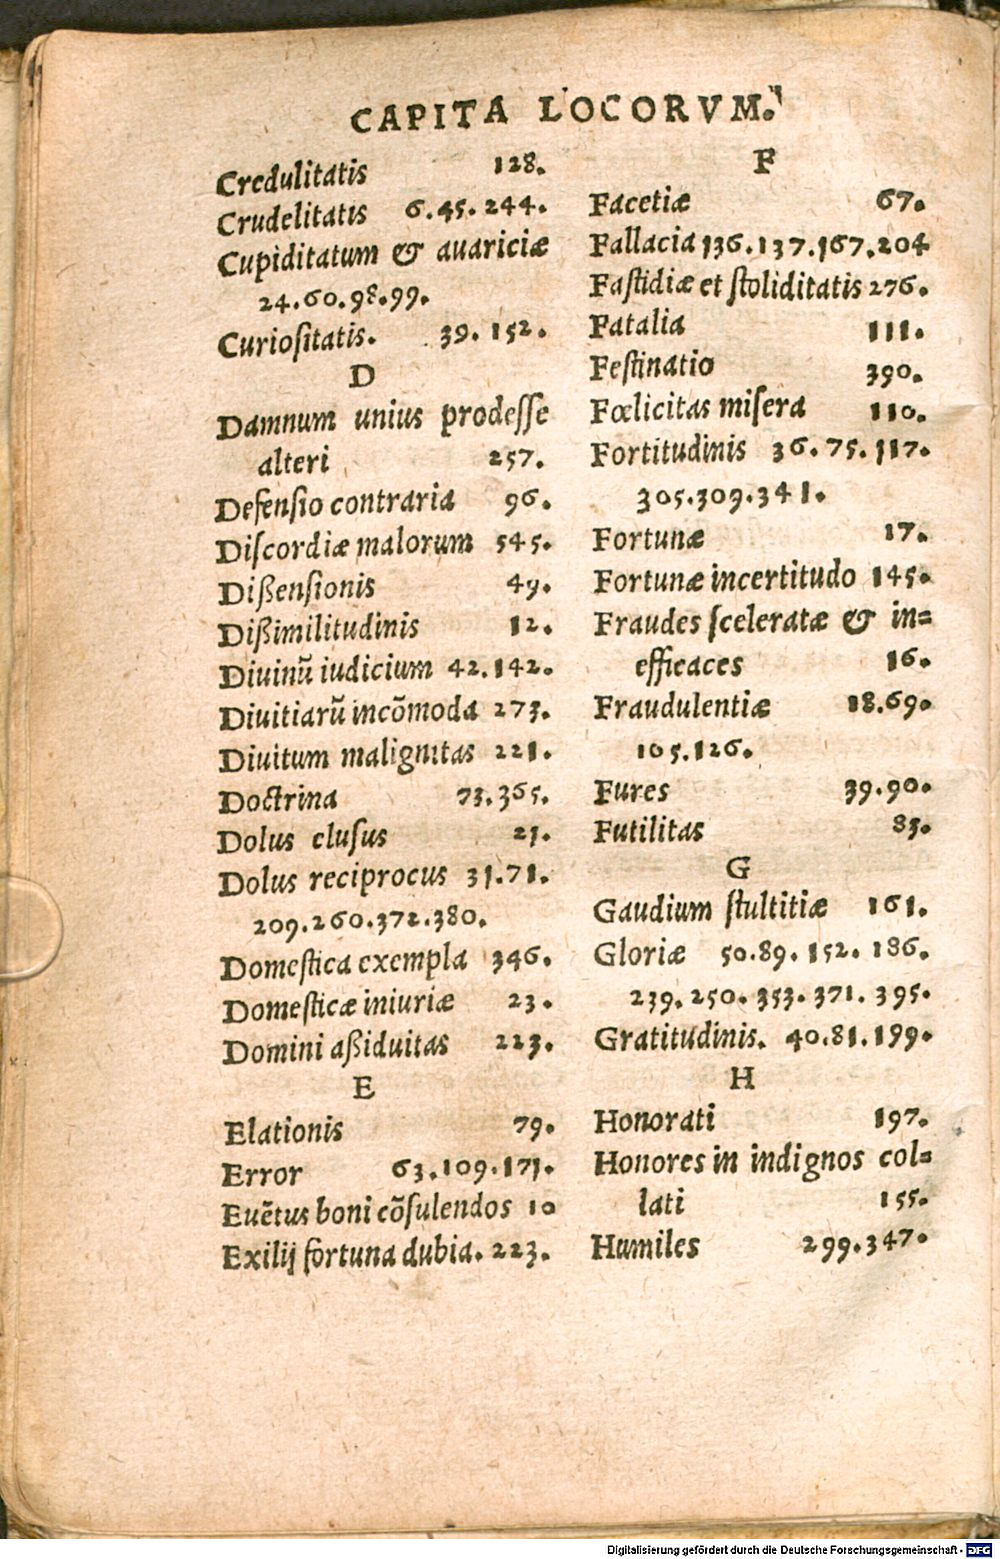 CAPITA LOCORVM.
Credulitatis 128.
Crudelitatis 6.45.244.
Cupiditatum & auariciæ
24.60.98.99.
Curioſitatis. 39.152.
D
Damnum unius prodeſſe
alteri 257.
Defenſio contraria 96.
Diſcordiæ malorum 545.
Dißenſionis 49.
Dißimilitudinis 12.
Diuinũ iudicium 42.142.
Diuitiarũ incõmoda 273.
Diuitum malignitas 221.
Doctrina 73.365.
Dolus eluſus 21.
Dolus reciprocus 31.71.
209.260.372.380.
Domeſtica exempla 346.
Domeſticæ iniuriæ 23.
Domini aßiduitas 223.
E
Elationis 79.
Error 63.109.171.
Euẽtus boni cõſulendos 10
Exilij fortuna dubia. 223.
F
Facetiæ 67.
Fallacia 136.137.167.204
Faſtidiæ et ſtoliditatis 276.
Fatalia 111.
Feſtinatio 390.
Fœlicitas miſera 110.
Fortitudinis 36.75.117.
305.309.341.
Fortunæ 17.
Fortunæ incertitudo 145.
Fraudes ſceleratæ & in=
efficaces 16.
Fraudulentiæ 18.69.
105.126.
Fures 39.90.
Futilitas 83.
G
Gaudium ſtultitiæ 161.
Gloriæ 50.89.152.186.
239.250.353.371.395.
Gratitudinis. 40.81.199.
H
Honorati 197.
Honores in indignos col=
lati 155.
Humiles 299.347.
Digitalisierung gefördert durch die Deutsche Forschungsgemeinschaft - DFG